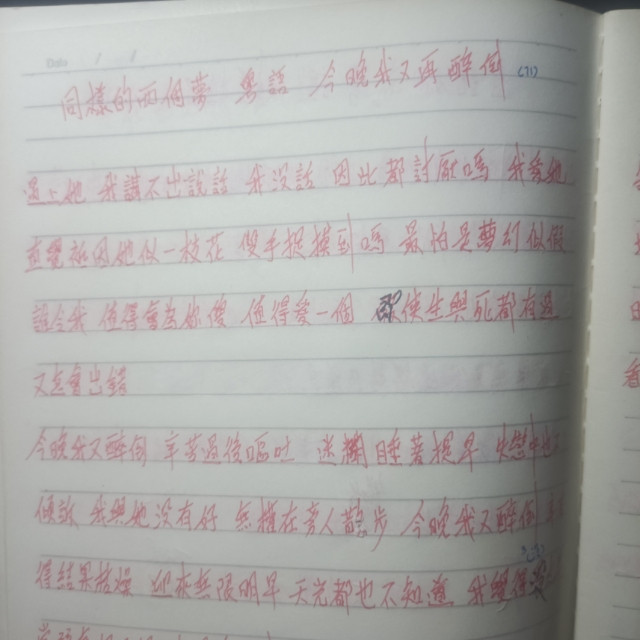 Date 1 1
同樣的兩個夢 粵語 今晚我又再醉倒 (71)
遇上她 我講不出說話 我沒話 因此都討厭嗎 我愛她
直覺就因她似一枝花 雙手握摸到嗎 最怕是夢幻似假
讓全我 值得會為你傻 值得愛一個 使生與死都有過
又怎會出錯
今晚我又醉倒 辛苦過後嘔吐 迷糊睡著提早 失戀
傾訴 我與她沒有好 無擁在旁人散步 今晚我又醉倒
得結果枯燥 迎來無限明早 天光都也不知道 我覺得